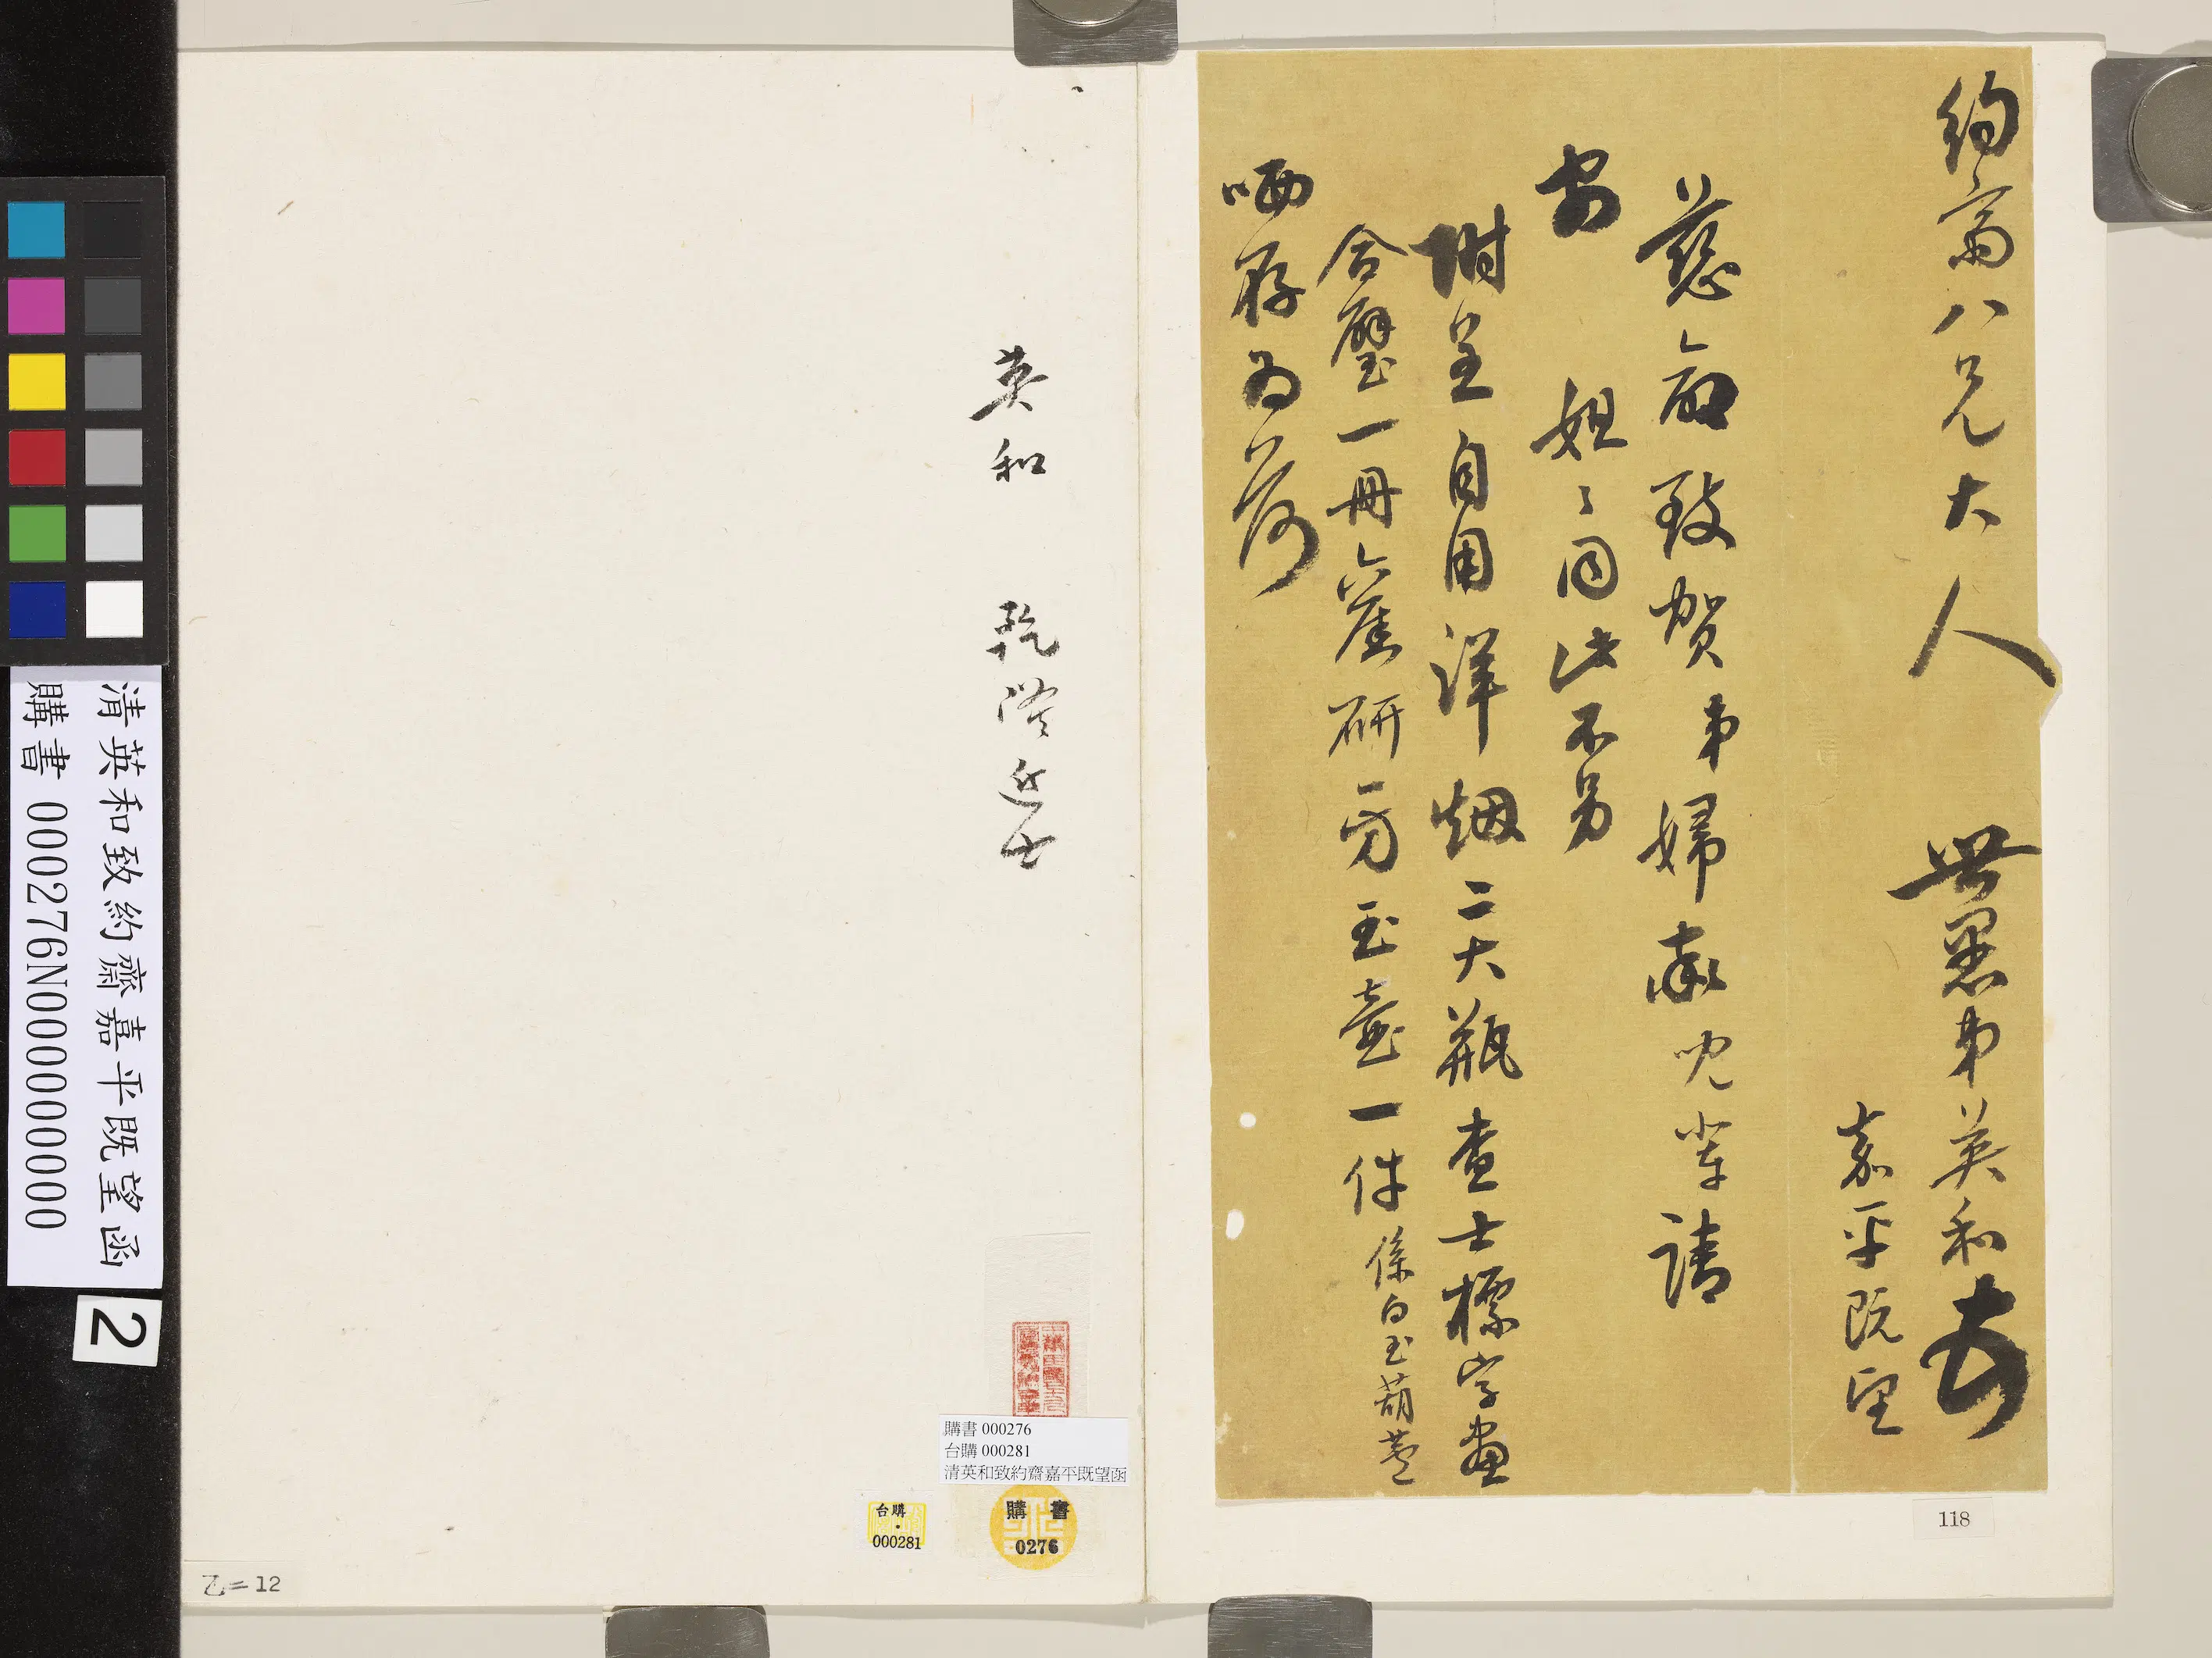 約齋八兄大人 世愚弟英和
嘉平既望
慈前致賀弟婦率兒輩請
安 姐〻同此不另
附呈自用洋烟二大瓶查士標字畫
合璧一冊舊研一方玉壺一件係白玉葫蘆
哂存為荷
118
英和 乾隆進士
購書 000276
台購 000281
清英和致約齋嘉平既望函
購書
0276
台購
000281
乙=12
清英和致約齋嘉平既望函
購書 000276N000000000
2